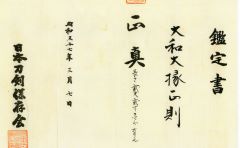 鑑定書
大和大掾正則
正真
昭和三七年三月七日
日本刀剣保存会